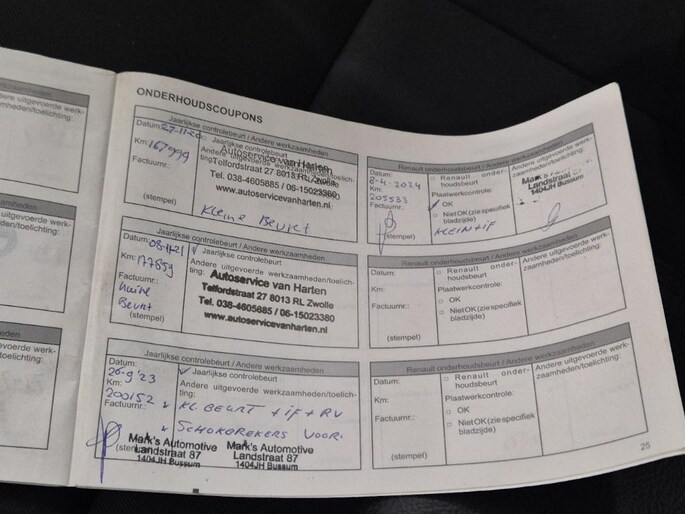 ONDERHOUDSCOUPONS
Jaarlijkse controlebeurt / Andere werkzaamheden
Datum: 27-11-20
Jaarlijkse controlebeurt
Km: 167999
Andere uitgevoerde werkzaamheden/toelichting:
Factuurnr.:
Autoservice van Harten
Telfordstraat 27 8013 RL Zwolle
Tel. 038-4605685 / 06-15023380
www.autoservicevanharten.nl
(stempel)
Kleine Beurt
Jaarlijkse controlebeurt / Andere werkzaamheden
Datum:
Jaarlijkse controlebeurt
Km: 177859
Andere uitgevoerde werkzaamheden/toelichting:
Factuurnr.:
Autoservice van Harten
Telfordstraat 27 8013 RL Zwolle
Tel. 038-4605685 / 06-15023380
www.autoservicevanharten.nl
Beurt
(stempel)
Jaarlijkse controlebeurt / Andere werkzaamheden
Datum:
26-9-'23
Jaarlijkse controlebeurt
Km:
200152
Andere uitgevoerde werkzaamheden/toelichting:
Factuurnr.:
KL BEURT + iF + RV
SCHOKBREKERS VOOR.
(stempel)
Mark's Automotive
Landstraat 87
1404JH Bussum
Mark's Automotive
Landstraat 87
1404JH Bussum
Renault onderhoudsbeurt / Andere werkzaamheden
Datum:
8-4-2024
Renault onderhoudsbeurt
Andere uitgevoerde werkzaamheden/toelichting:
Km:
205533
Plaatwerkcontrole:
OK
Factuurnr.:
Niet OK (zie specifiek bladzijde)
KLEIN + iF
(stempel)
Landstraat
1404JH Bussum
Renault onderhoudsbeurt / Andere werkzaamheden
Datum:
Renault onderhoudsbeurt
Andere uitgevoerde werkzaamheden/toelichting:
Km:
Plaatwerkcontrole:
OK
Factuurnr.:
Niet OK (zie specifiek bladzijde)
(stempel)
Renault onderhoudsbeurt / Andere werkzaamheden
Datum:
Renault onderhoudsbeurt
Andere uitgevoerde werkzaamheden/toelichting:
Km:
Plaatwerkcontrole:
OK
Factuurnr.:
Niet OK (zie specifiek bladzijde)
(stempel)
25